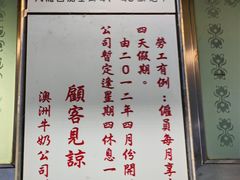 勞工有例：僱員每月享
四天假期。
由二〇一二年四月份開
公司暫定逢星期四休息一
顧客見諒
澳洲牛奶公司